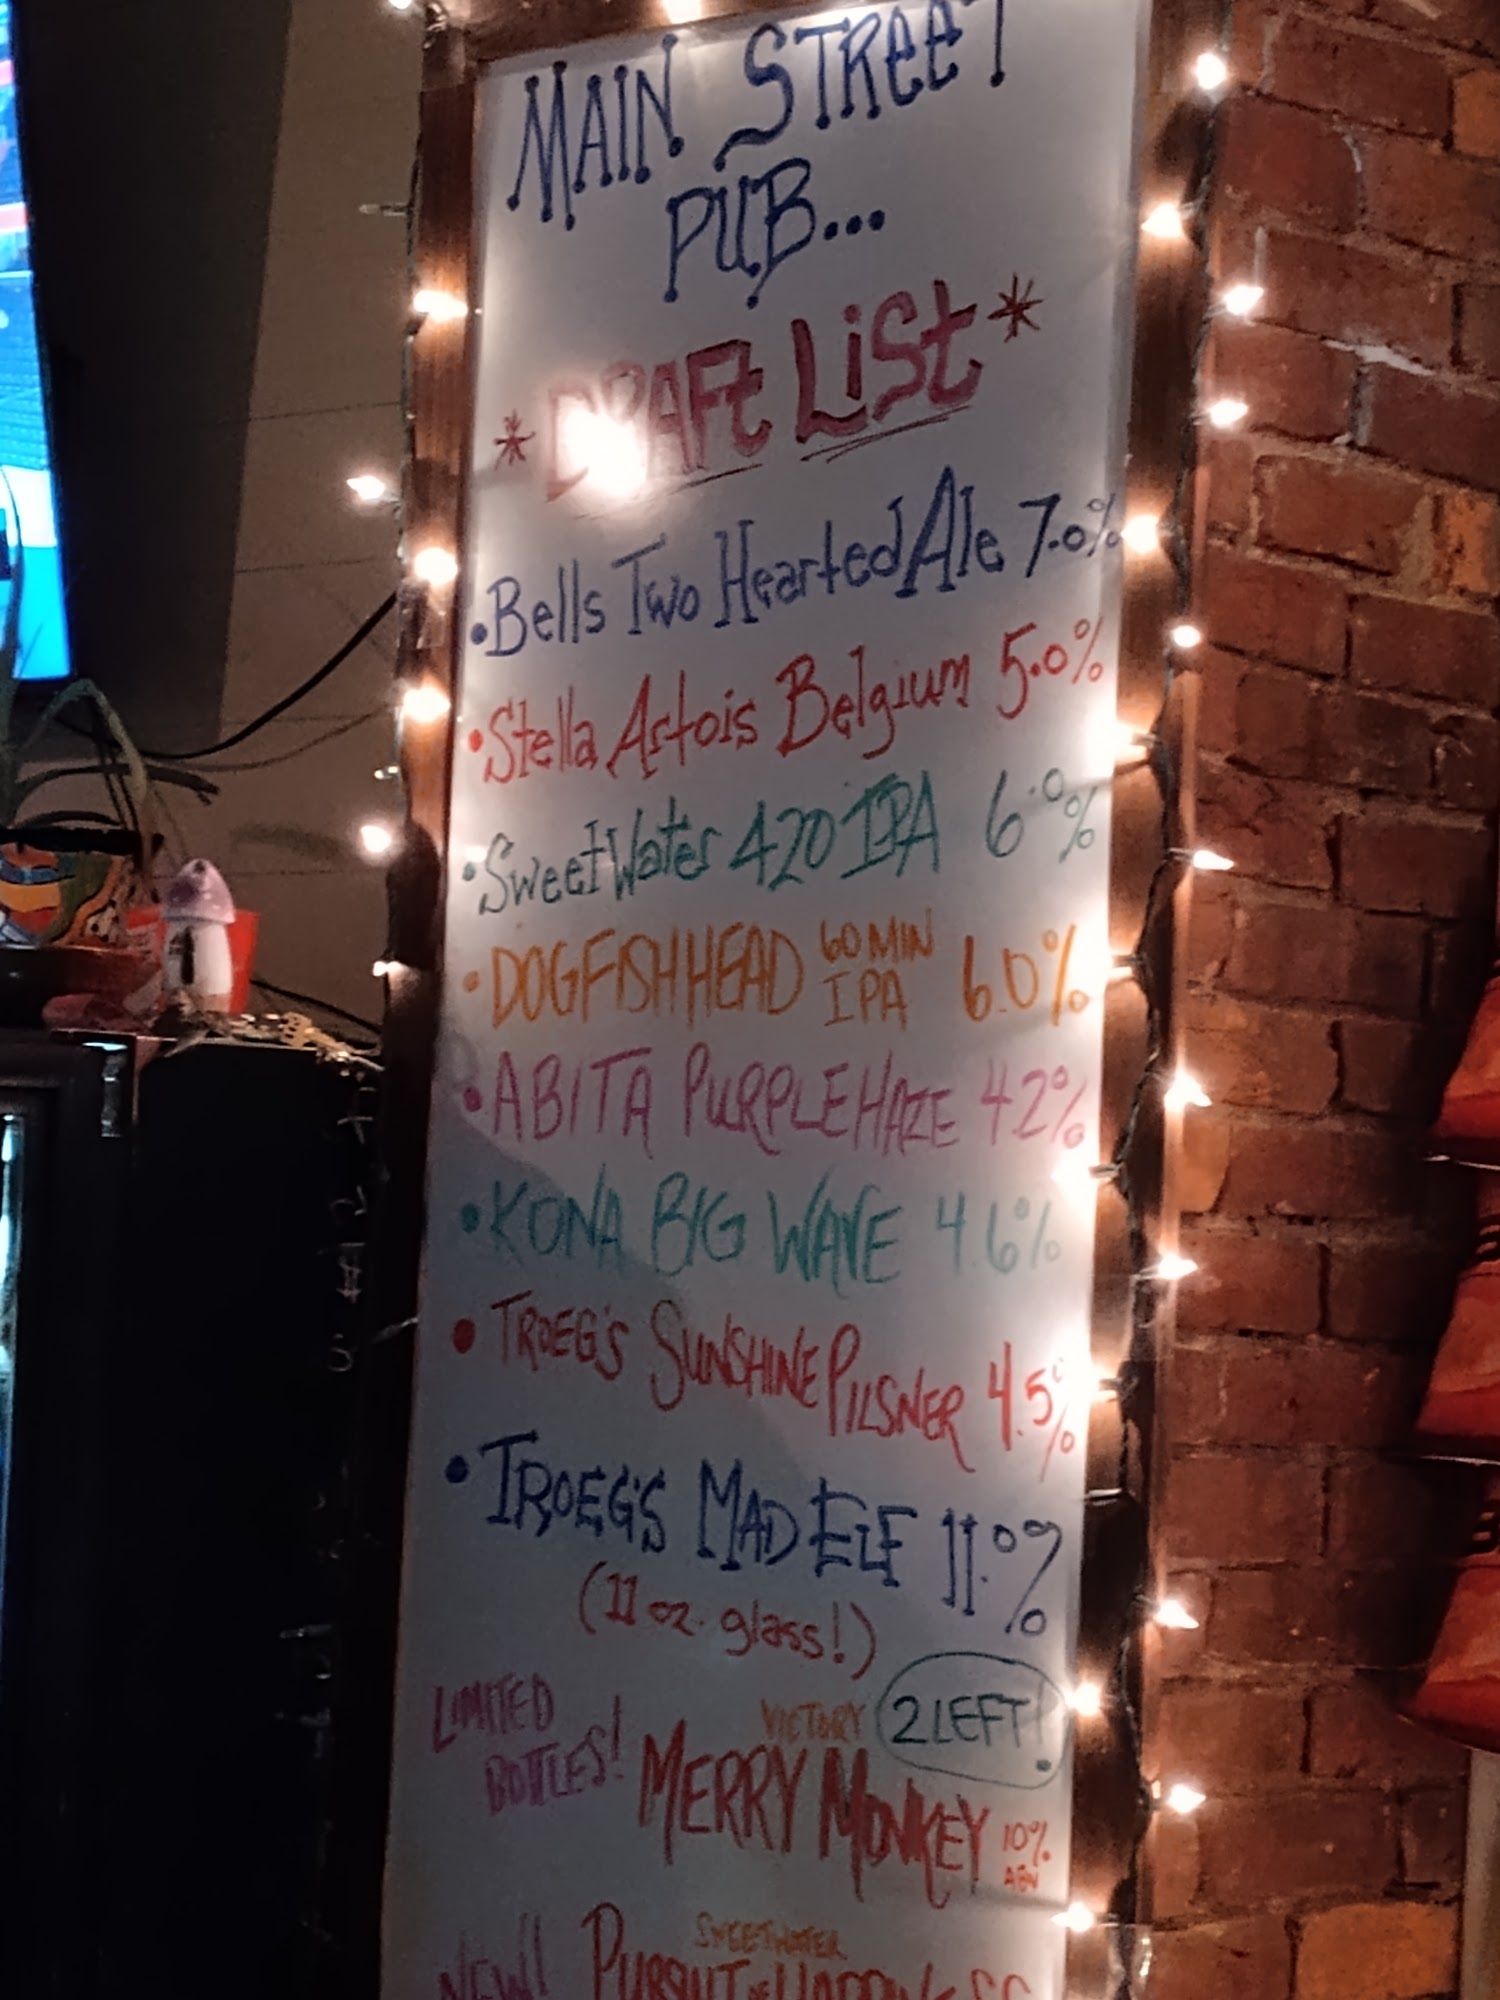 MAIN STREET
PUB...
*DRAFt LiSt*
•Bells Two Hearted Ale 7.0%
•Stella Artois Belgium 5.0%
•SweetWater 420 IPA 6.0%
•DOGFISHHEAD 60 MIN IPA 6.0%
•ABITA PURPLE HAZE 4.2%
•KONA BIG WAVE 4.6%
•TROEG'S SUNSHINE PILSNER 4.5%
•TROEG'S MAD ELF 11.0%
(11 oz. glass!)
LIMITED BOTTLES! VICTORY 2 LEFT!
MERRY MONKEY 10% ABV
NEW! SWEETWATER
PURSUIT of HAPPINESS